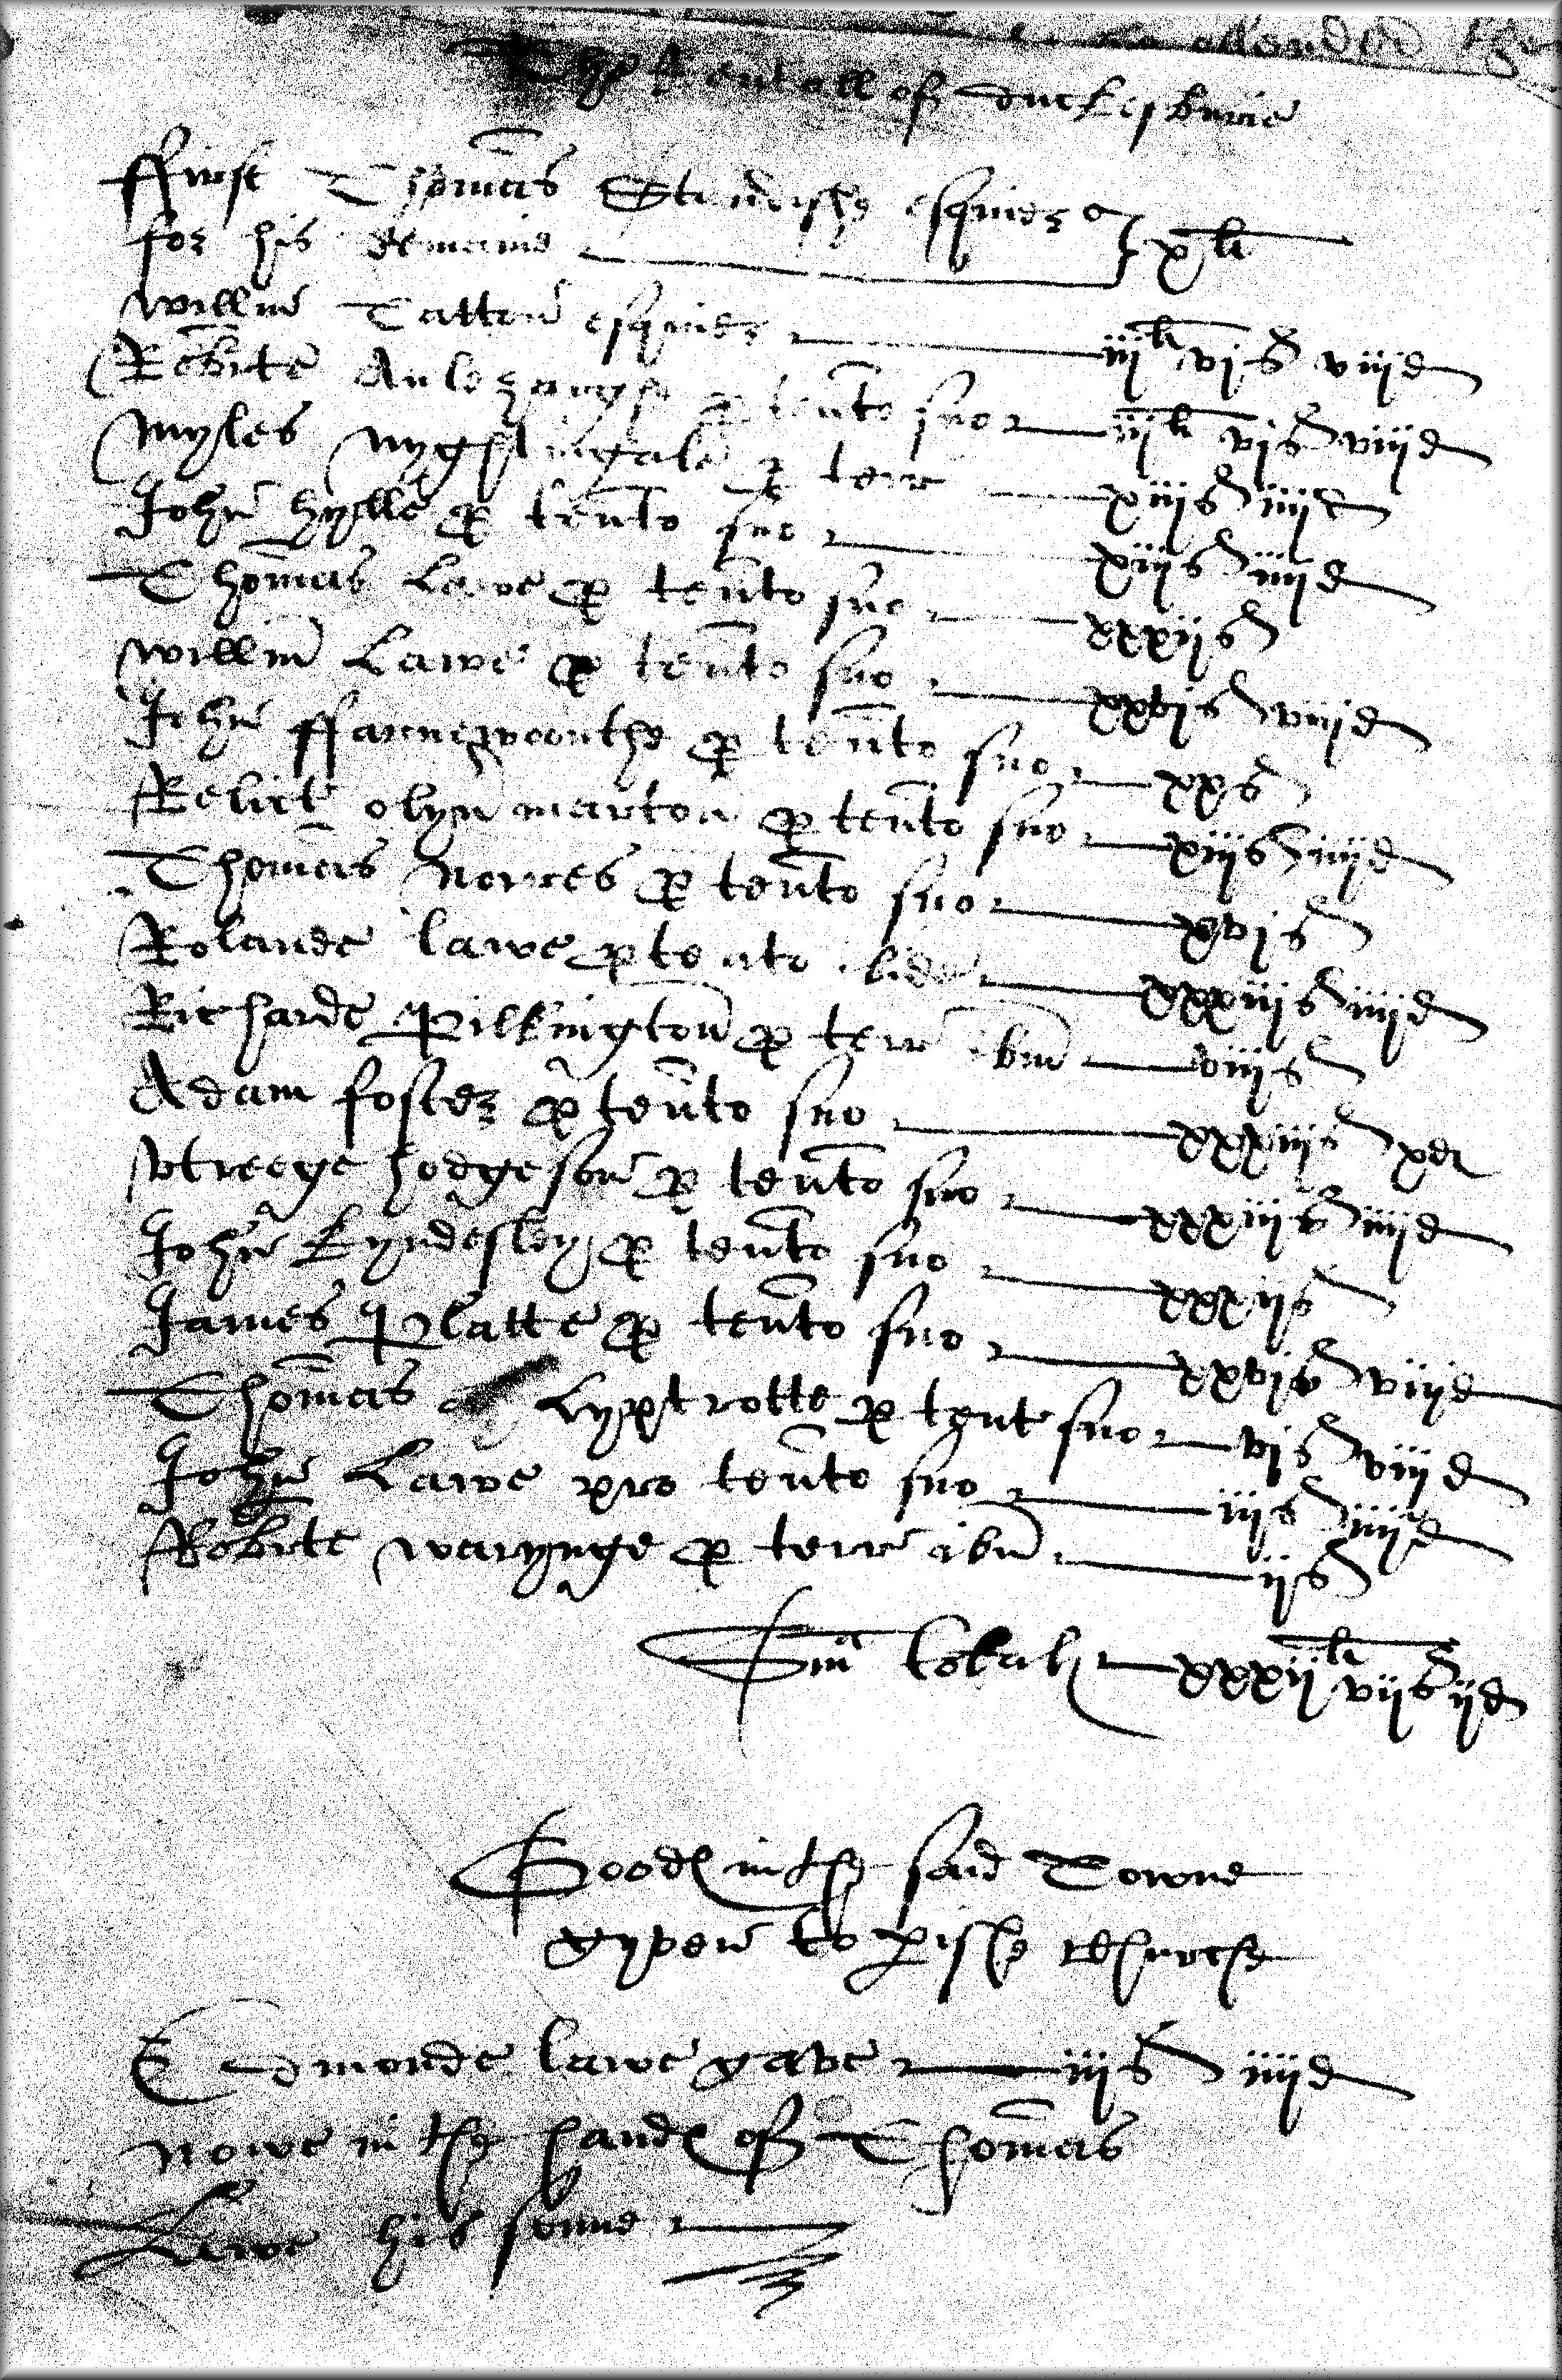 The Rentall of Duckesburie
ffirst Thom̄as Standyshe esquier
for his demaine xli
Willm̄ Tatton esquier iijli vjs viijd
Rob̄rte Aulezargh p tent̄o suo iijli vjs viijd
Myles Nyghtingale p terr xiijs iiijd
John̄ Hylle p tent̄o suo xiijs iiijd
Thom̄as Lawe p tent̄o suo xxxijs
Willm̄ Lawe p tent̄o suo xxvjs viijd
John̄ ffarneworthe p tent̄o suo xxs
Relict olyu marton p tent̄o suo xiijs iiijd
Thom̄as Norres p tent̄o suo xvjs
Rolande Lawe p tento ibide xxxiijs iiijd
Richarde Pilkington̄ p terr ibm̄ viijs
Adam foster p tent̄o suo xxxiiijs xd
Vtreege Hodgeson̄ p tent̄o suo xxxiijs iiijd
John̄ Kyndesley p tent̄o suo xxxijs
James Platte p tent̄o suo xxvjs viijd
Thom̄as Lyptrotte p tent suo vjs viijd
John̄ Lawe pro tent̄o suo iijs iiijd
Rob̄rte Warynge p terr ibm̄ ijs
Sm̄ totalis xxxijli vijs ijd
Goodes in the said Towne
gyven to pishe church
Edmonde Lawe gave iijs iiijd
nowe in the handes of Thom̄as
Lawe his sonne